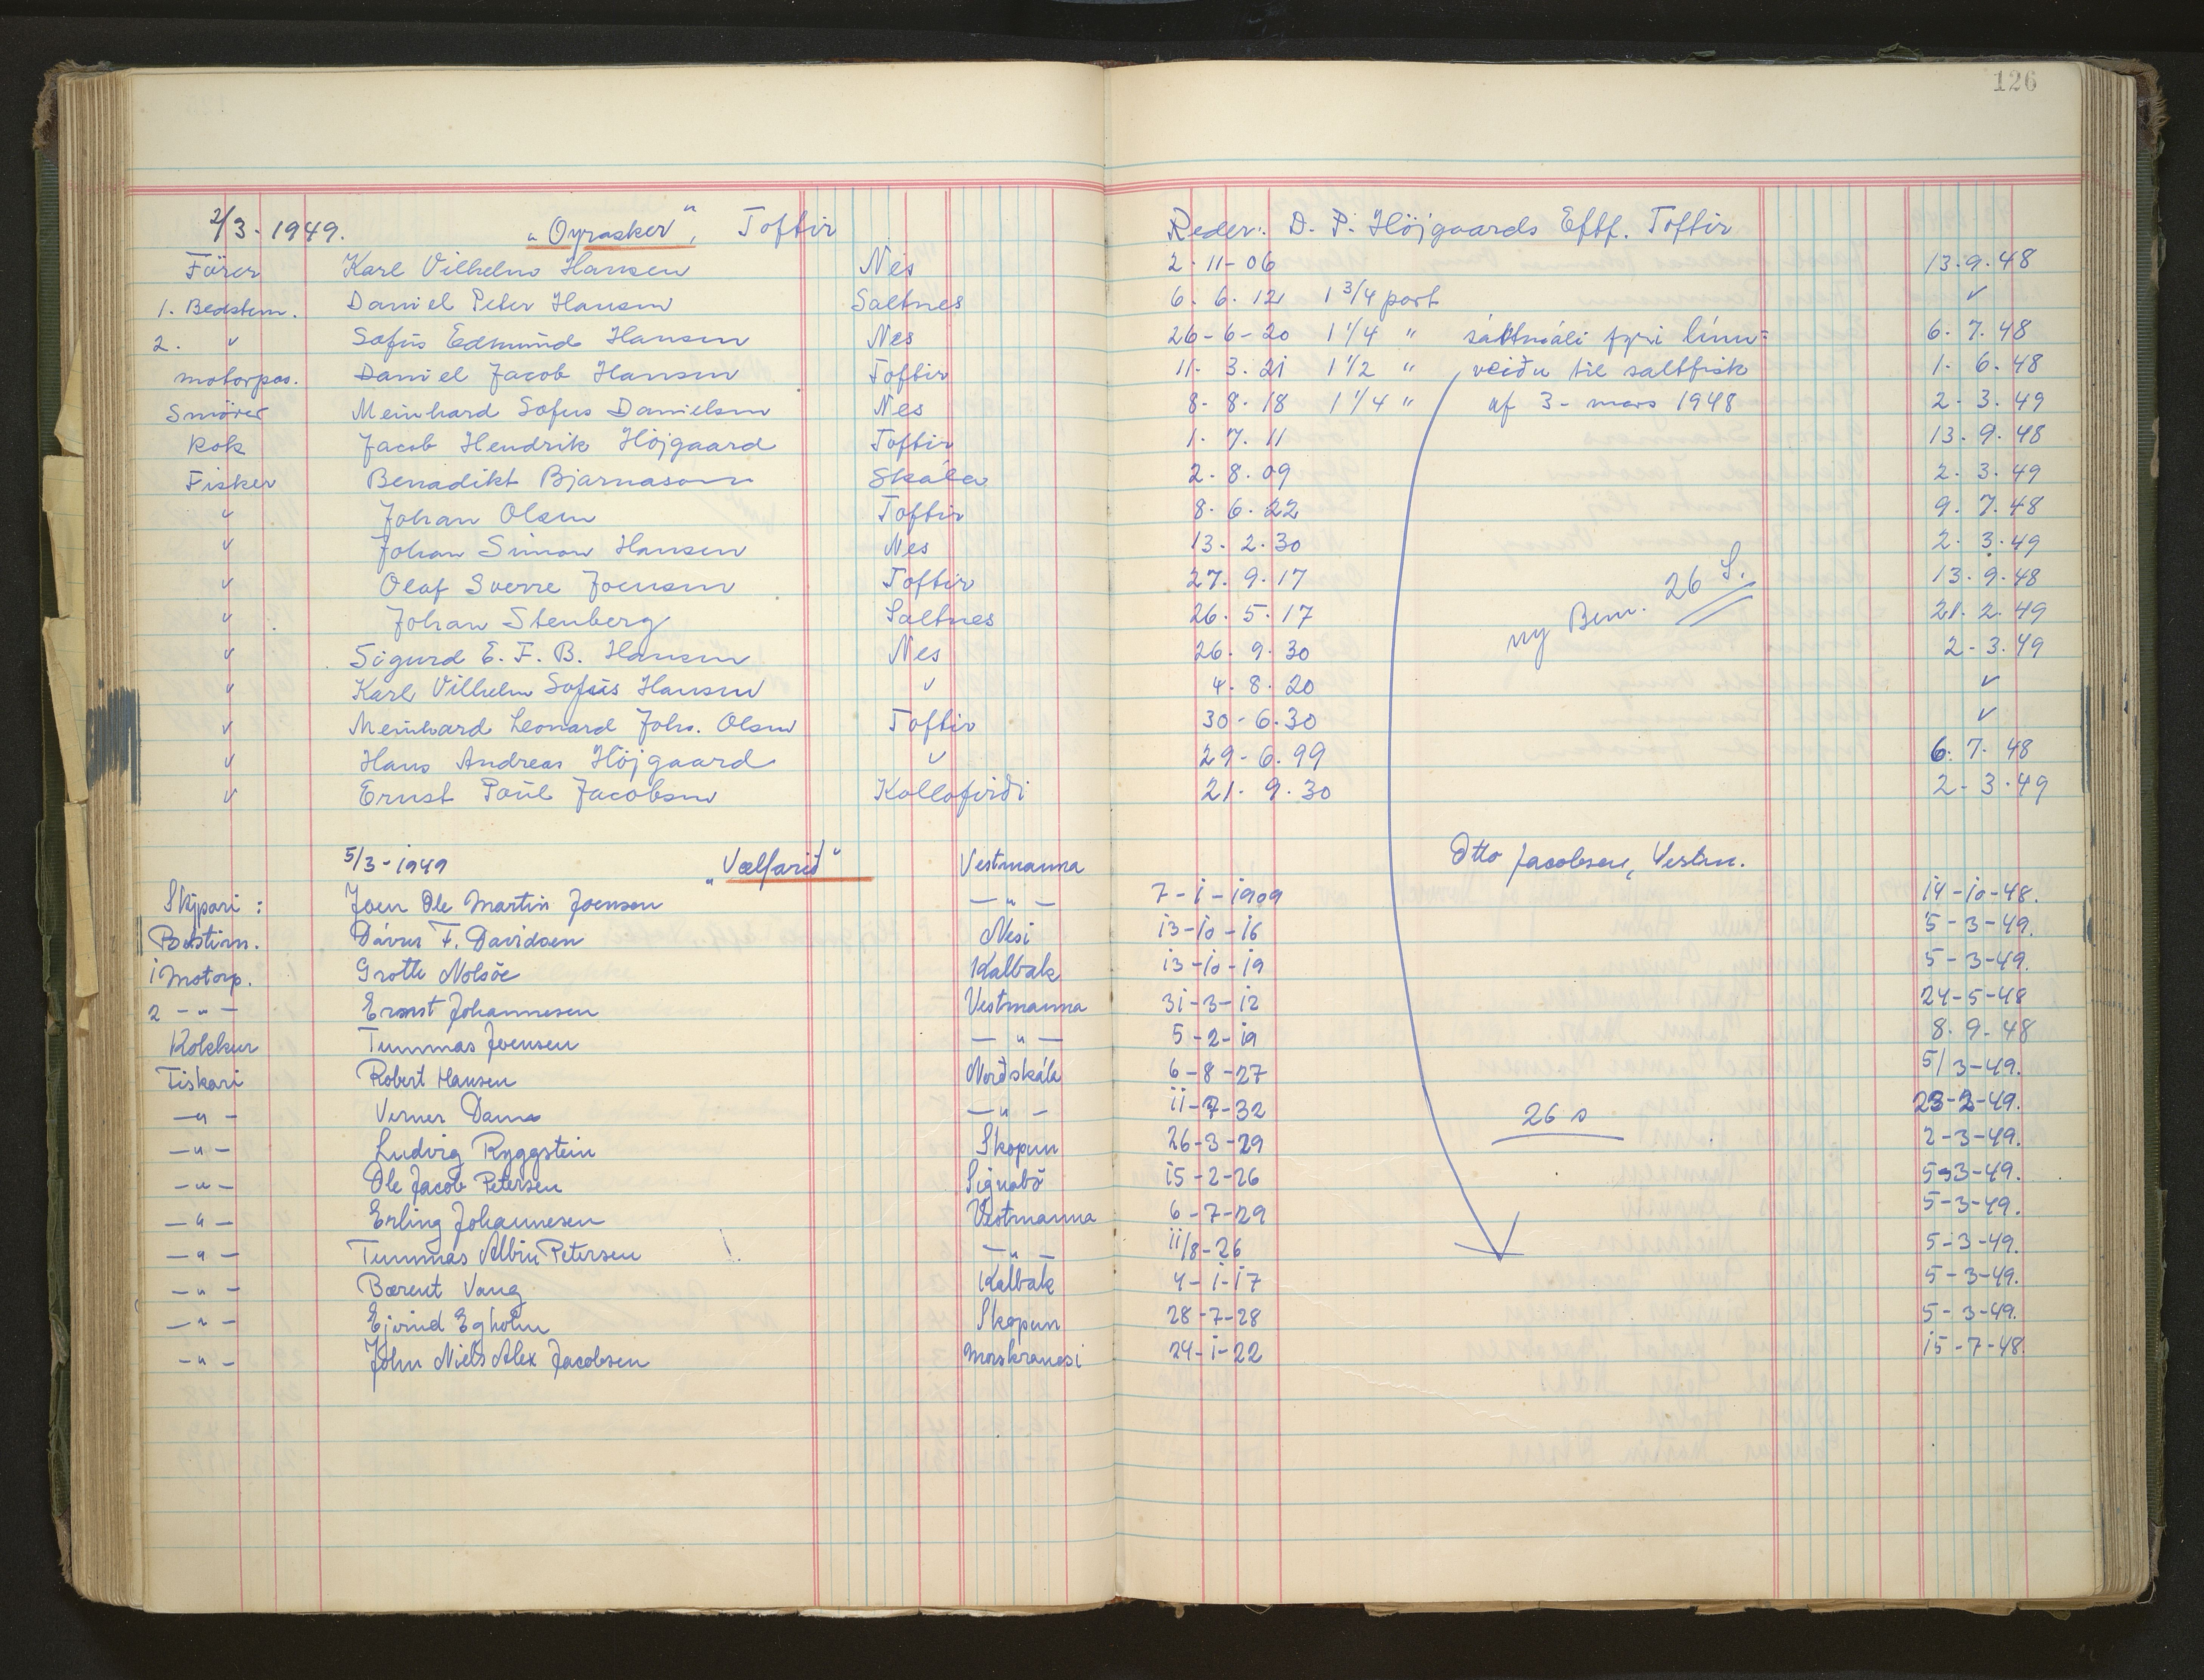 126
2/3-1949. "Oyrasker", Toftir Reder: D. P. Höjgaards Eftf. Toftir
Förer Karl Vilhelm Hansen Nes 2-11-06 13.9.48
1. Bedstem. Daniel Peter Hansen Saltnes 6. 6. 12 1 3/4 part ✓
2. " Sofus Edmund Hansen Nes 26-6-20 1 1/4 " sáttmáli fyri línu= 6. 7. 48
motorpas. Daniel Jacob Hansen Toftir 11. 3. 21 1 1/2 " veiðu til saltfisk 1. 6. 48
Smörer Meinhard Sofus Danielsen Nes 8- 8. 18 1 1/4 " af 3- mars 1948 2- 3. 49
Kok Jacob Hendrik Höjgaard Toftir 1. 7. 11 13. 9. 48
Fisker Benadikt Bjarnason Skála 2. 8. 09 2. 3. 49
" Johan Olsen Toftir 8. 6. 22 9. 7. 48
" Johan Simon Hansen Nes 13. 2. 30 2. 3. 49
" Olaf Sverre Joensen Toftir 27. 9. 17 ny Bem. 26 S. 13. 9. 48
" Johan Stenberg Saltnes 26. 5. 17 21. 2. 49
" Sigurd E. F. B. Hansen Nes 26. 9. 30 2- 3. 49
" Karl Vilhelm Sofus Hansen " 4. 8. 20 ✓
" Meinhard Leonard Johs. Olsen Toftir 30-6.30 ✓
" Hans Andreas Höjgaard " 29-6.99 6. 7. 48
" Ernst Poul Jacobsen Kollafirði 21. 9. 30 2- 3. 49
5/3-1949 "Vælfarið" Vestmanna Otto Jacobsen, Vestm.
Skipari : Joen Ole Martin Joensen — " — 7-1-1909 14-10-48.
Bestim. Dávur F. Davidsen Nesi 13-10-16 5-3-49.
1 Motorp. Grotte Nolsöe Kalbak 13-10-19 5-3-49.
2 - " - Ernst Johannesen Vestmanna 31-3-12 24-5-48
Kokkur Tummas Joensen — " — 5-2-19 8. 9-48
Fiskari Robert Hansen Norðskála 6-8-27 5/3-49.
— " — Verner Dam — " — 11-7-32 26 s 23-2-49.
— " — Ludvig Ryggstein Skopun 26-3-29 2-3-49.
— " — Ole Jacob Petersen Signabö 15-2-26 5-3-49.
— " — Erling Johannesen Vestmanna 6-7-29 5-3-49.
— " — Tummas Albin Petersen — " — 11/8-26 5-3-49.
— " — Bærent Vang Kalbak 4-1-17 5-3-49.
— " — Ejvind Egholm Skopun 28-7-28 5-3-49.
— " — John Niels Alex Jacobsen Morskranesi 24-1-22 15-7-48.